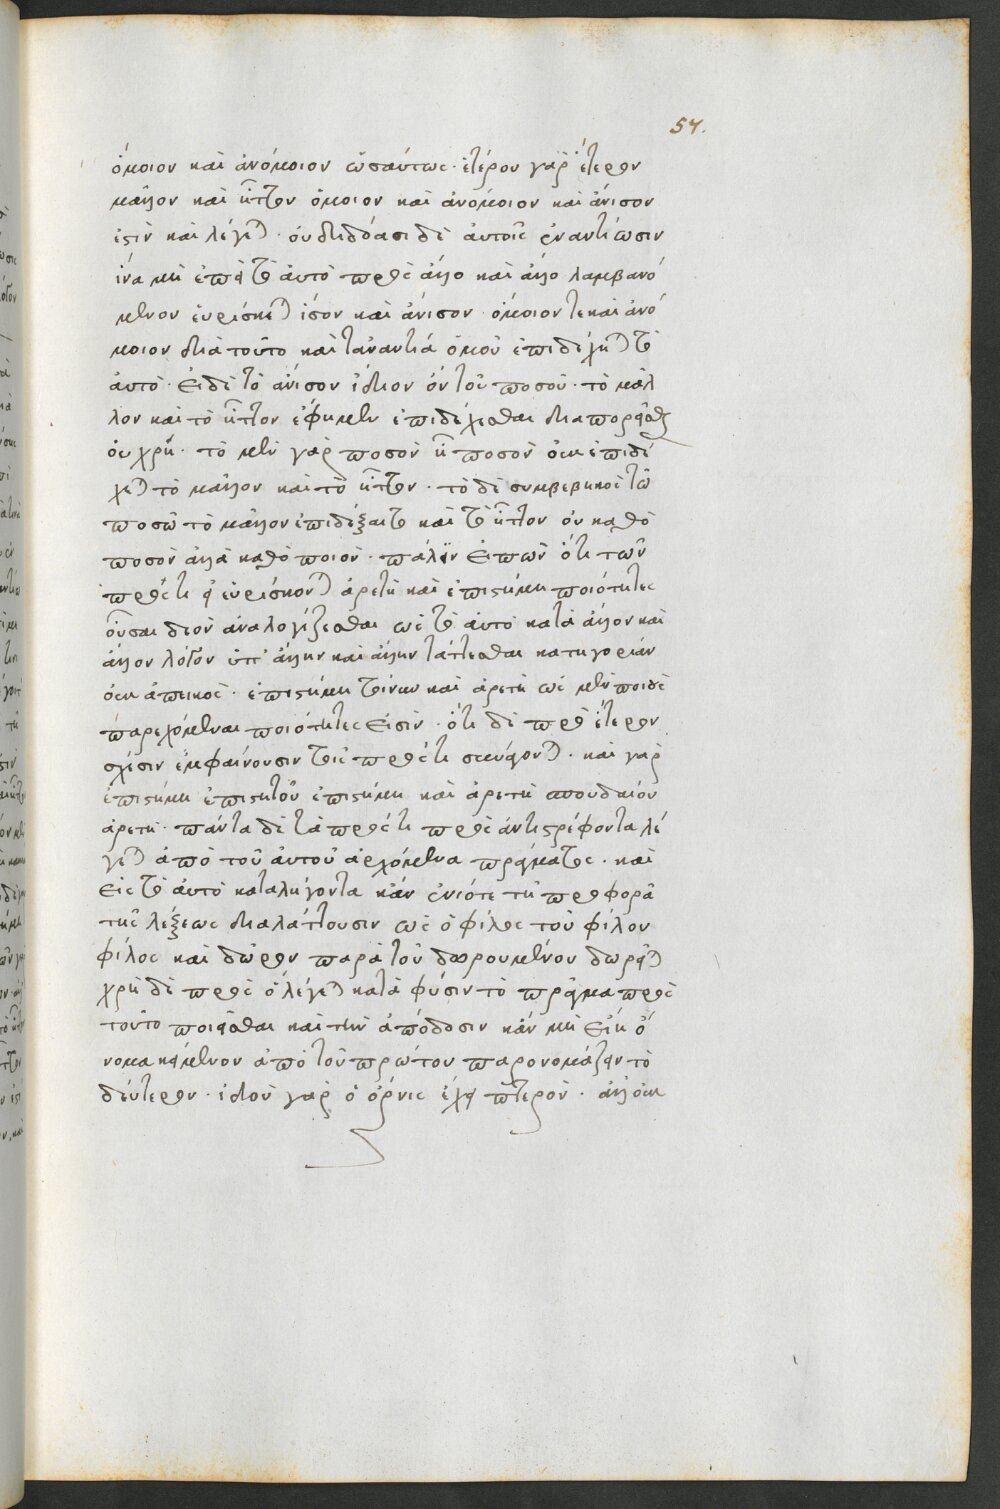 57.
ὅμοιον καὶ ἀνόμοιον ὡσαύτως · ἑτέρου γὰρ ἕτερον
μᾶλλον καὶ ἧττον ὅμοιον καὶ ἀνόμοιον καὶ ἄνισον
ἐστὶν καὶ λέγεται · οὐ διδόασι δὲ αὐτοῖς ἐναντίωσιν
ἵνα μὴ ἐπεὶ τὸ αὐτὸ πρὸς ἄλλο καὶ ἄλλο λαμβανό
μενον εὑρίσκεται ἴσον καὶ ἄνισον · ὅμοιον τε καὶ ἀνό
μοιον διὰ τοῦτο καὶ τἀναντιά ὁμοῦ ἐπιδέχηται τὸ
αὐτό · Εἰ δὲ τὸ ἄνισον ἴδιον ὂν τοῦ ποσοῦ · τὸ μᾶλ
λον καὶ τὸ ἧττον ἔφημεν ἐπιδέχεσθαι διαπορεῖσθαι
οὐ χρή · τὸ μὲν γὰρ ποσὸν ᾗ ποσὸν οὐκ ἐπιδέ
χεται τὸ μᾶλλον καὶ τὸ ἧττον · τὸ δὲ συμβεβηκὸς τῷ
ποσῷ τὸ μᾶλλον ἐπιδέξαιτο καὶ τὸ ἧττον οὐ καθὸ
ποσὸν ἀλλὰ καθὸ ποιόν · πάλιν Εἰπὼν ὅτι τῶν
πρός τι εὑρίσκονται ἀρετὴ καὶ ἐπιστήμη ποιότητες
οὖσαι δέον ἀναλογίζεσθαι ὡς τὸ αὐτὸ κατὰ ἄλλον καὶ
ἄλλον λόγον ὑπ' ἄλλην καὶ ἄλλην τάττεσθαι κατηγορίαν
οὐκ ἀπεικός · ἐπιστήμη τοίνυν καὶ ἀρετὴ ὡς μὲν ποιοὺς
παρεχόμεναι ποιότητες Εἰσίν · ὅτι δὲ πρὸς ἕτερον
σχέσιν ἐμφαίνουσιν τοῖς πρός τι σκευάζονται · καὶ γὰρ
ἐπιστήμη ἐπιστητοῦ ἐπιστήμη καὶ ἀρετὴ σπουδαίου
ἀρετή · πάντα δὲ τὰ πρός τι πρὸς ἀντιστρέφοντα λέ
γεται ἀπὸ τοῦ αὐτοῦ ἀρχόμενα πράγματος · καὶ
Εἰς τὸ αὐτὸ καταλήγοντα κἂν ἐνιότε τῇ προφορᾷ
τῆς λέξεως διαλάττουσιν ὡς ὁ φίλος τοῦ φίλου
φίλος καὶ δῶρον παρὰ τοῦ δωρουμένου δωρεῖται
χρὴ δὲ πρὸς ὃ λέγεται κατὰ φύσιν τὸ πρᾶγμα πρὸς
τοῦτο ποιεῖσθαι καὶ τὴν ἀπόδοσιν κἂν μὴ Εἴη ὄ
νομα κείμενον ἀπὸ τοῦ πρώτου παρονομάζειν τὸ
δεύτερον · ἰδοὺ γὰρ ὁ ὄρνις ἔχει πτερόν · ἀλλ οὐκ